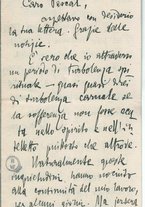 Caro Pescal,
aspettavo con desiderio
la tua lettera. Grazie delle
notizie.
È vero che io attraverso
un periodo di turbolenza spi-
rituale — quasi quasi direi
di turbolenza carnale se
la sofferenza non fosse
tutta nello spirito e nell'in-
telletto piuttosto che altrove.
Naturalmente queste
inquietudini hanno nociuto
alla continuità del mio lavoro,
per alcuni giorni. Ma